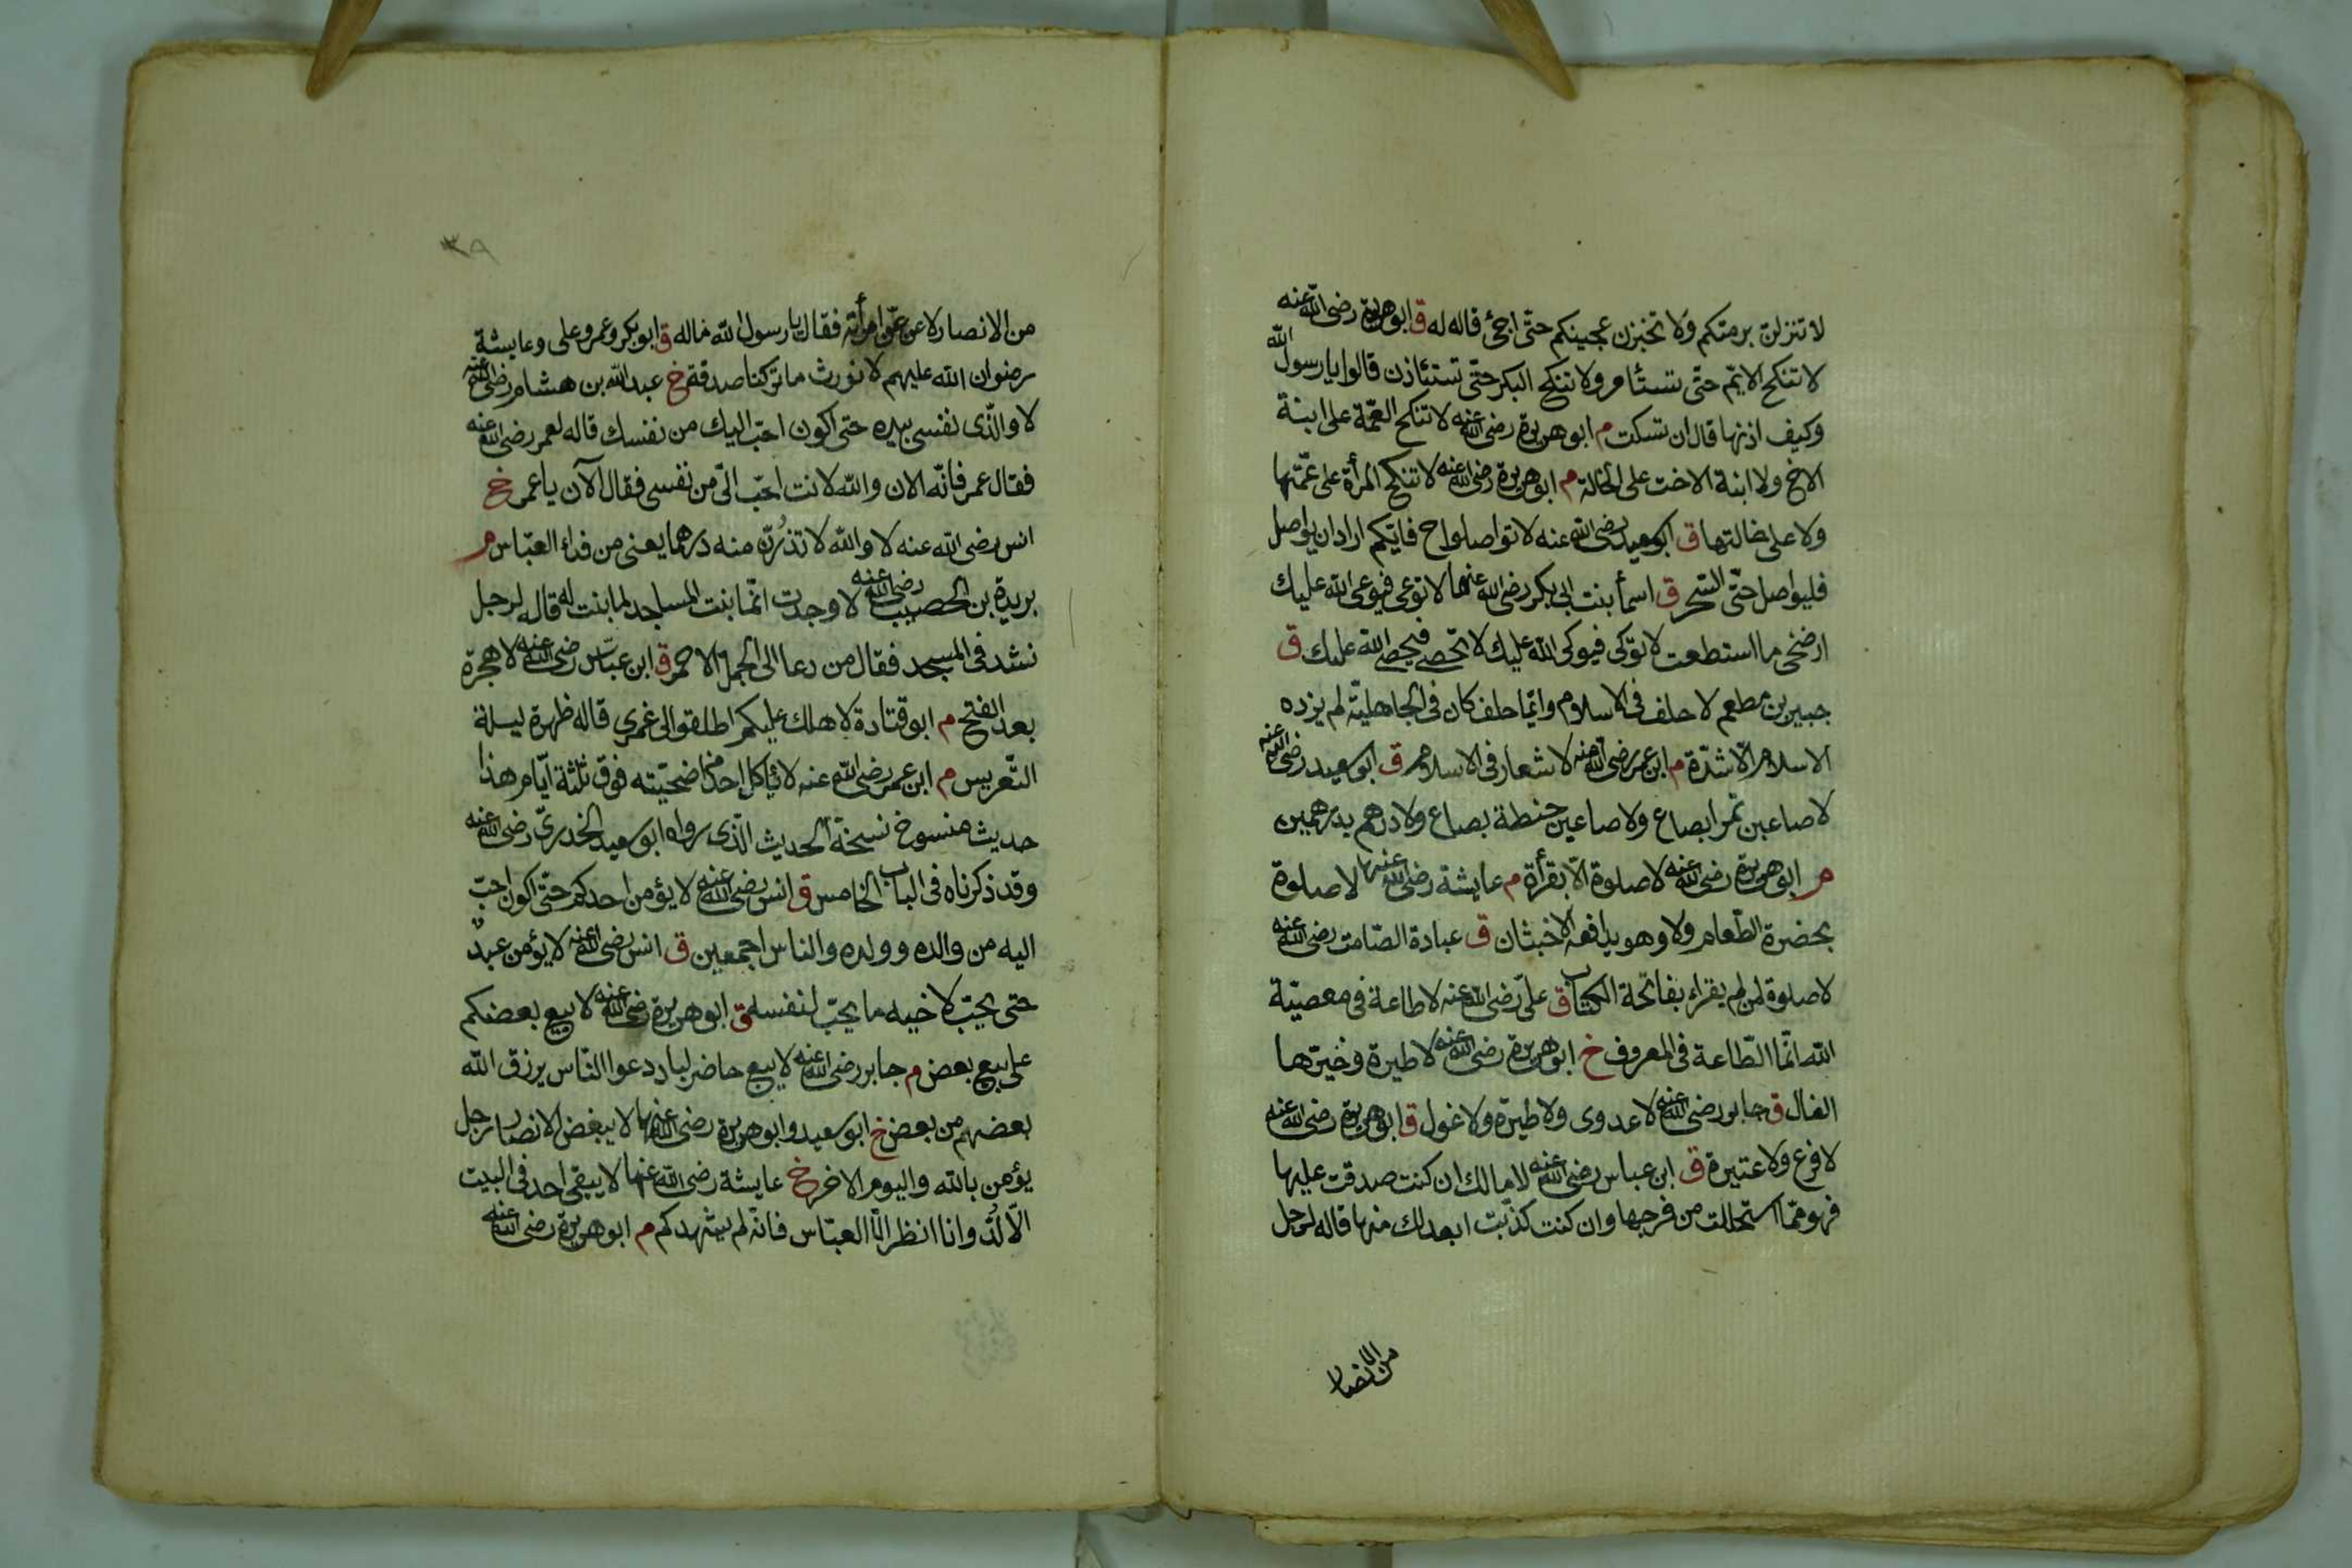 لا تنزلن برمتكم ولا تخبزن عجينكم حتّى اجئ قاله له ق ابو هريرة رضى الله عنه
لا تنكح الايّم حتّى تستأمر ولا تنكح البكر حتّى تستئاذن قالوا يا رسول الله
وكيف اذنها قال ان تسكت م ابو هريرة رضى الله عنه لا تنكح العمّة على ابنة
الاخ ولا ابنة الاخت على الخالة م ابو هريرة رضى الله عنه لا تنكح المرأة على عمّتها
ولا على خالتها ق ابو سعيد رضى الله عنه لا تواصلوا ح فايّكم اراد ان يواصل
فليواصل حتّى السّحر ق اسمأ بنت ابى بكر رضى الله عنهما لا توعى فيوعى الله عليك
ارضخى ما استطعت لا توكى فيوكى الله عليك لا تحصى فيحصى الله عليك ق
جبير بن مطعم لا حلف فى الاسلام وايّما حلف كان فى الجاهليّة لم يزده
الاسلام الّا شدّة م ابن عمر رضى الله عنه لا شغار فى الاسلام ق ابو سعيد رضى الله عنه
لا صاعين تمرا بصاع ولا صاعين حنطة بصاع ولا درهم بدرهمين
م ابو هريرة رضى الله عنه لا صلوة الّا بقرأة م عايشة رضى الله عنها لا صلوة
بحضرة الطّعام ولا وهو يدافعه الاخبثان ق عبادة الصّامت رضى الله عنه
لا صلوة لمن لم يقراء بفاتحة الكتاب ق علىّ رضى الله عنه لا طاعة فى معصيّة
الله انّما الطّاعة فى المعروف خ ابو هريرة رضى الله عنه لا طيرة وخيرها
الفال ق جابر رضى الله عنه لا عدوى ولا طيرة ولا غول ق ابو هريرة رضى الله عنه
لا فرع ولا عتيرة ق ابن عباس رضى الله عنه لا مالك ان كنت صدقت عليها
فهو ممّا استحللت من فرجها وان كنت كذبت ابعد لك منها قاله لرجل
من الانصار
٣٩
من الانصار لاعن امرأته فقال يا رسول الله ماله ق ابو بكر وعمر وعلى وعايشة
رضوان الله عليهم لا نورث ما تركنا صدقة خ عبد الله بن هشام رضى الله عنه
لا والّذى نفسى بيده حتى اكون احبّ اليك من نفسك قاله لعمر رضى الله عنه
فقال عمر فانّه الان والله لانت احبّ الىّ من نفسى فقال الآن يا عمر خ
انس رضى الله عنه لا والله لا تذرنّ منه درهما يعنى من فداء العبّاس م
بريدة بن الحصيب رضى الله عنه لا وجدت انّما بنت المساجد لما بنت له قاله لرجل
نشد فى المسجد فقال من دعا الى الجمل الاحمر ق ابن عبّاس رضى الله عنه لا هجرة
بعد الفتح م ابو قتادة لا هلك عليكم اطلقوا لى غمرى قاله ظهرة ليلة
التّعريس م ابن عمر رضى الله عنه لا يأكل احد من اضحيّته فوق ثلثة ايّام هذا
حديث منسوخ نسخة الحديث الّذى رواه ابو سعيد الخدرىّ رضى الله عنه
وقد ذكرناه فى الباب الخامس ق انس رضى الله عنه لا يؤمن احدكم حتّى اكون احبّ
اليه من والده وولده والناس اجمعين ق انس رضى الله عنه لا يؤمن عبدٌ
حتى يحبّ لاخيه ما يحبّ لنفسه ق ابو هريرة رضى الله عنه لا يبيع بعضكم
على بيع بعض م جابر رضى الله عنه لا يبيع حاضر لباد دعوا النّاس يرزق الله
بعضهم من بعض خ ابو سعيد وابو هريرة رضى الله عنهما لا يبغض الانصار رجل
يؤمن بالله واليوم الاخر خ عايشة رضى الله عنها لا يبقى احد فى البيت
الّا لُدّ وانا انظر الّا العبّاس فانّه لم يشهدكم م ابو هريرة رضى الله عنه